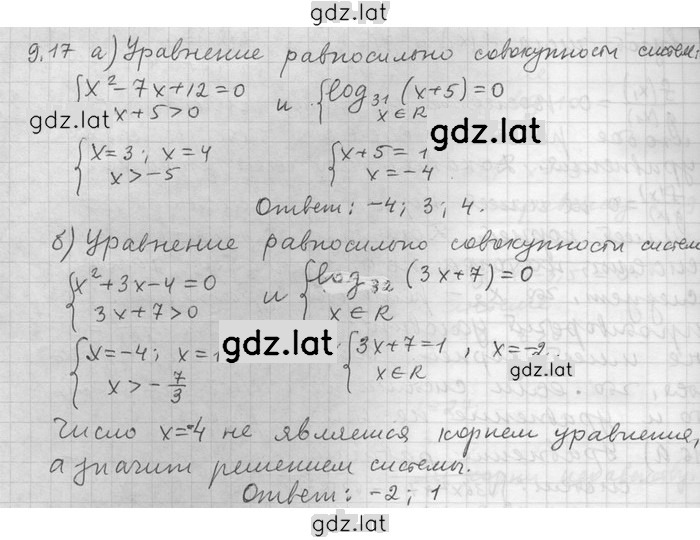 gdz.lat
9.17 а) Уравнение равносильно совокупности систем:
{x² - 7x + 12 = 0 и {log₃₁ (x+5) = 0
gdz.lat x + 5 > 0 x ∈ R
gdz.lat
{x = 3; x = 4 {x + 5 = 1
x > -5 x = -4.
Ответ: -4; 3; 4.
б) Уравнение равносильно совокупности систем
{x² + 3x - 4 = 0 и {log₃₂ (3x + 7) = 0
3x + 7 > 0 x ∈ R
gdz.lat
{x = -4; x = 1 {3x + 7 = 1, x = -2.
x > -7/3 x ∈ R gdz.lat
Число x = -4 не является корнем уравнения,
а значит решением системы.
Ответ: -2; 1
gdz.lat